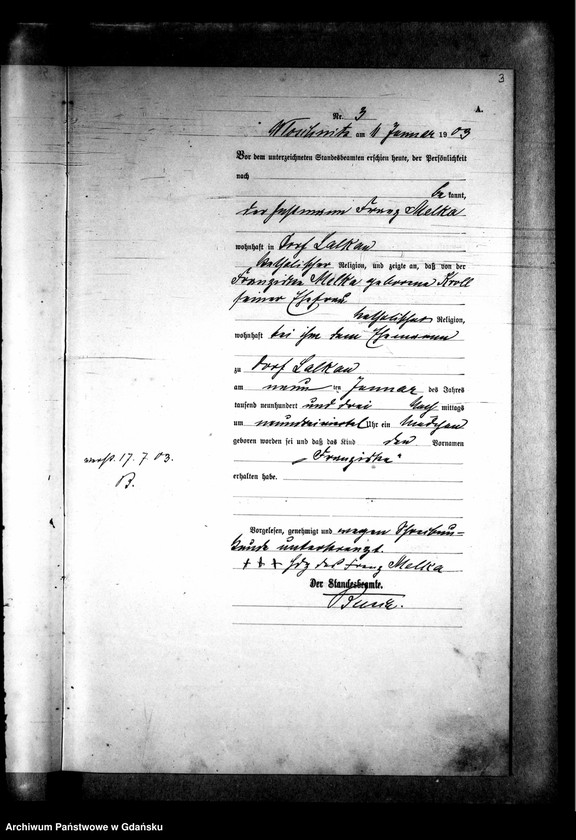 3
A.
Nr. 3
am 11 Januar 1903
Vor dem unterzeichneten Standesbeamten erschien heute, der Persönlichkeit
nach
be kannt,
der Franz Melka
wohnhaft in Dorf Lalkau
katholischer Religion, und zeigte an, daß von der
Franziska Melka geborene Kroll
seiner Ehefrau
katholischer Religion,
wohnhaft bei ihm dem Ehemann
zu Dorf Lalkau
am neun ten Januar des Jahres
tausend neunhundert und drei Nach mittags
um neundreiviertel Uhr ein Mädchen
geboren worden sei und daß das Kind den Vornamen
„Franziska“
erhalten habe.
17. 7. 03.
B.
Vorgelesen, genehmigt und wegen Schreibun-
kunde unterkreuzt.
+ + + Hdz des Franz Melka
Der Standesbeamte.
Archiwum Państwowe w Gdańsku